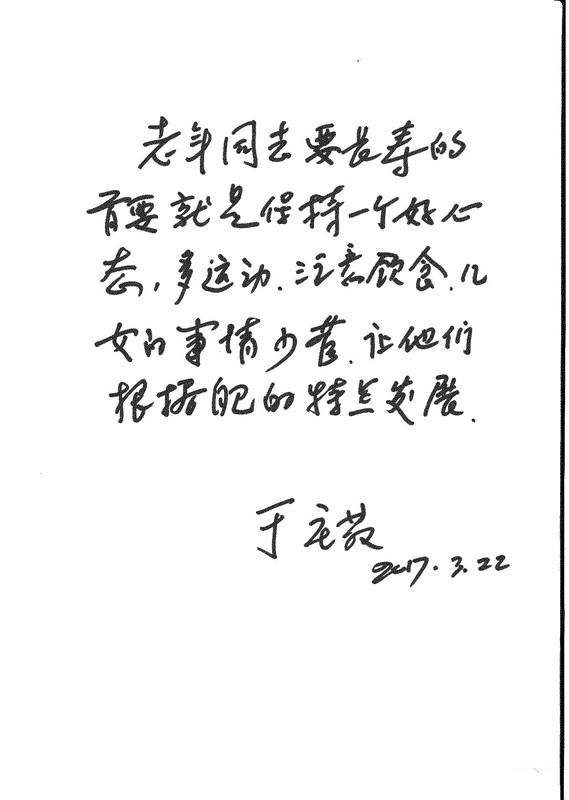 老年同志要长寿的
首要就是保持一个好心
态,多运动.注意饮食.儿
女的事情少管.让他们
根据自己的特点发展.
于
2017.3.22